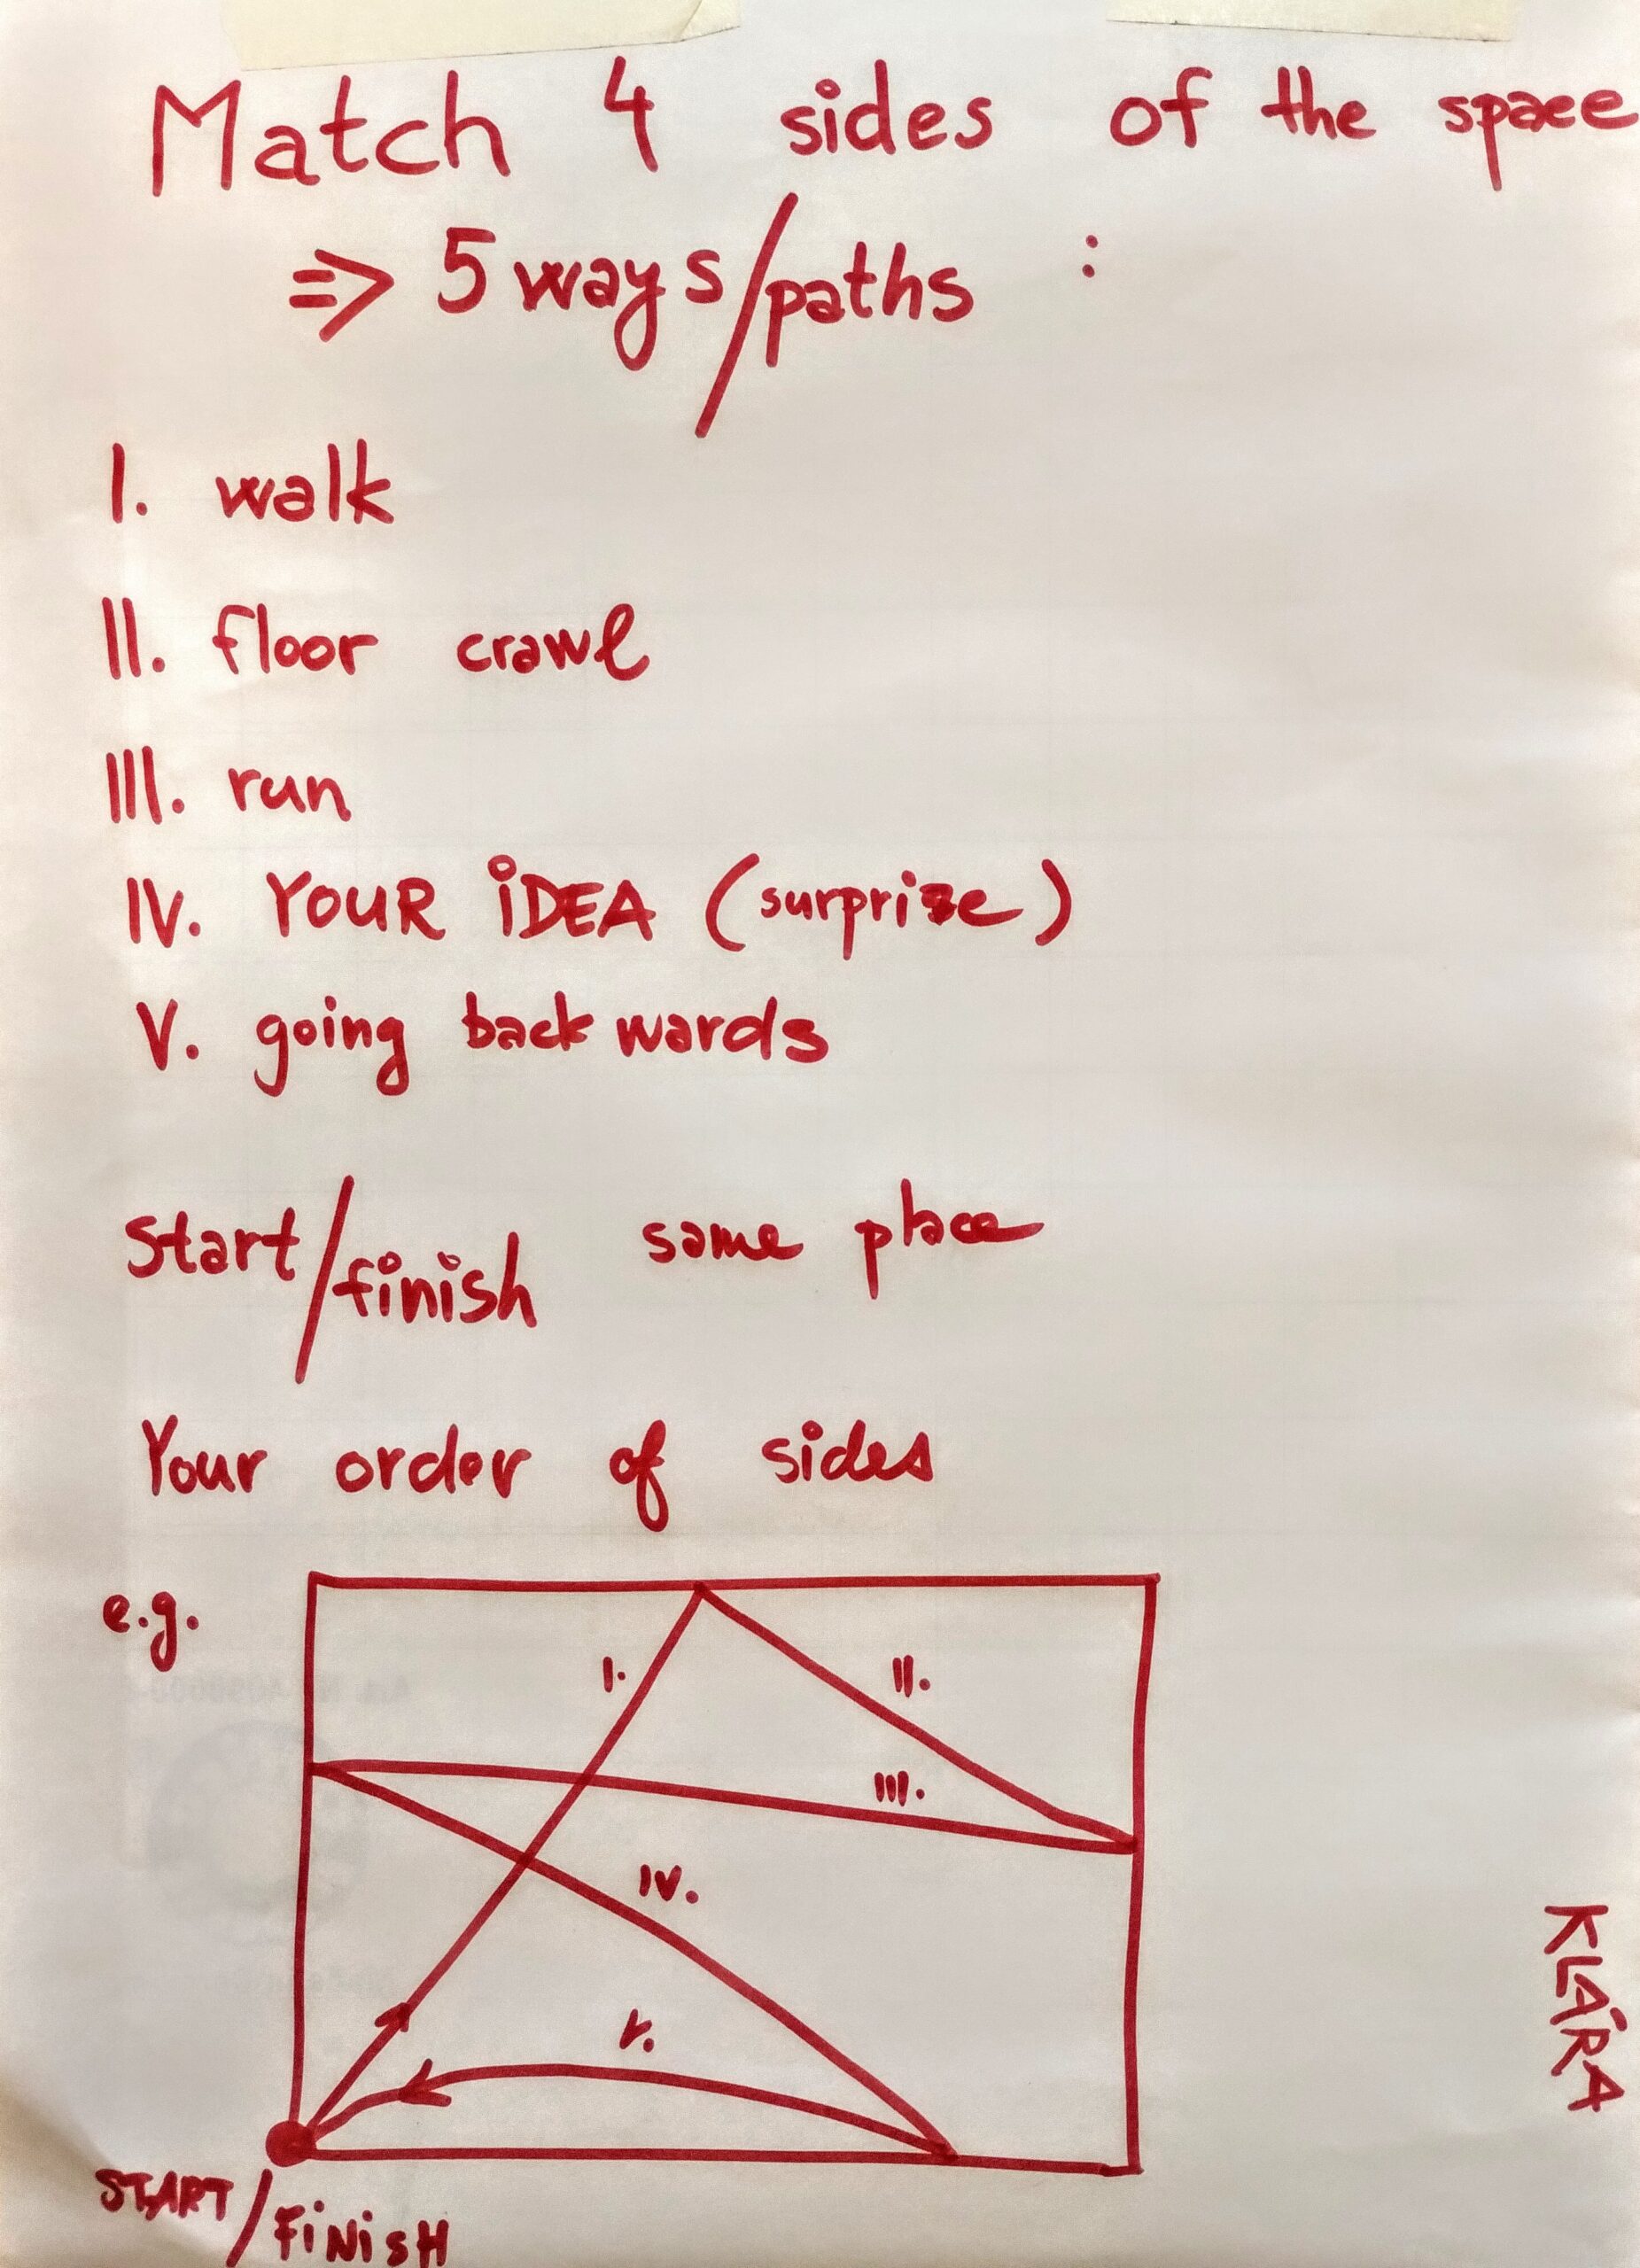 Match 4 sides of the space
=> 5 ways/paths :
I. walk
II. floor crawl
III. run
IV. YOUR iDEA (surprise)
V. going backwards
start/finish same place
Your order of sides
e.g.
I.
II.
III.
IV.
V.
START/FiNisH
KLÁRA